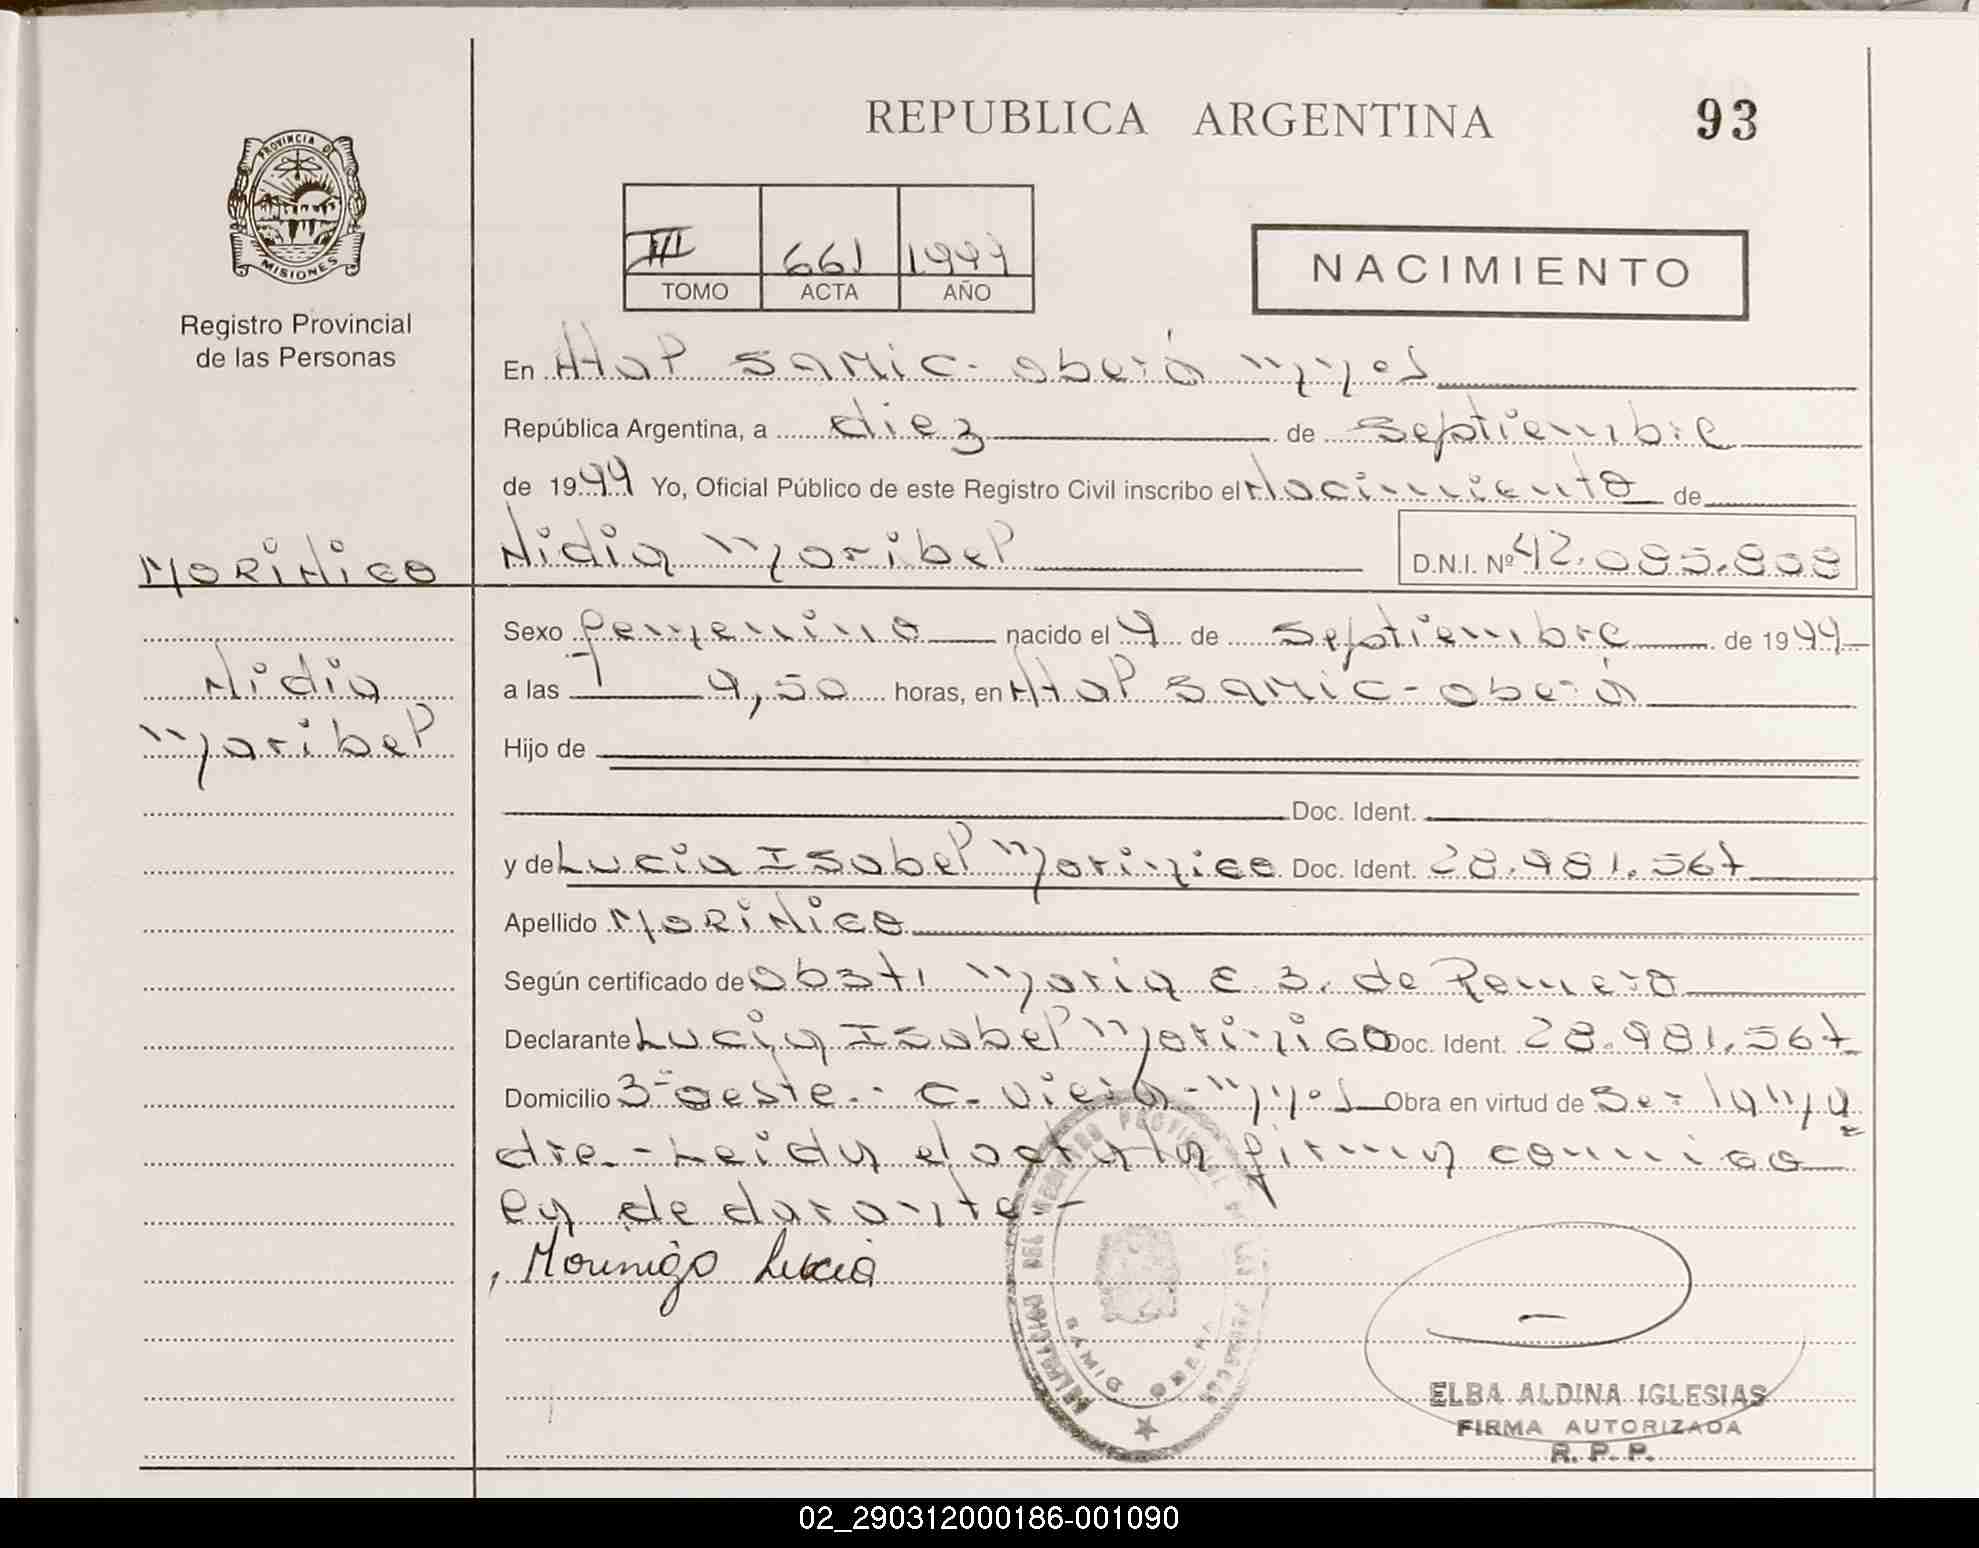 REPUBLICA ARGENTINA
93
PROVINCIA DE
MISIONES
Registro Provincial
de las Personas
III 661 1999
TOMO ACTA AÑO
NACIMIENTO
En Htal SAMIC - Oberá Mnes
República Argentina, a diez de Septiembre
de 1999 Yo, Oficial Público de este Registro Civil inscribo el Nacimiento de
MORINIGO
Nidia Maribel
D.N.I. Nº 42.085.808
Sexo femenino nacido el 9 de Septiembre de 1999
Nidia
a las 9,50 horas, en Htal SAMIC - Oberá
Maribel
Hijo de
Doc. Ident.
y de Lucia Isabel Morinigo Doc. Ident. 28.981.567
Apellido MORINIGO
Según certificado de Obst. Maria E. B. de Romero
Declarante Lucia Isabel Morinigo Doc. Ident. 28.981.567
Domicilio 3- oeste - C. Viera - Mnes Obra en virtud de Ser la Ma
dre - Leida el acta la firma conmigo
la declarante -
Morinigo Lucia
OBERA
ELBA ALDINA IGLESIAS
FIRMA AUTORIZADA
R. P. P.
02_290312000186-001090